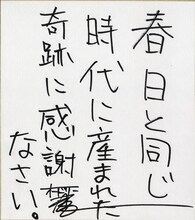 春日と同じ
時代に産まれた
奇跡に感謝
なさい。